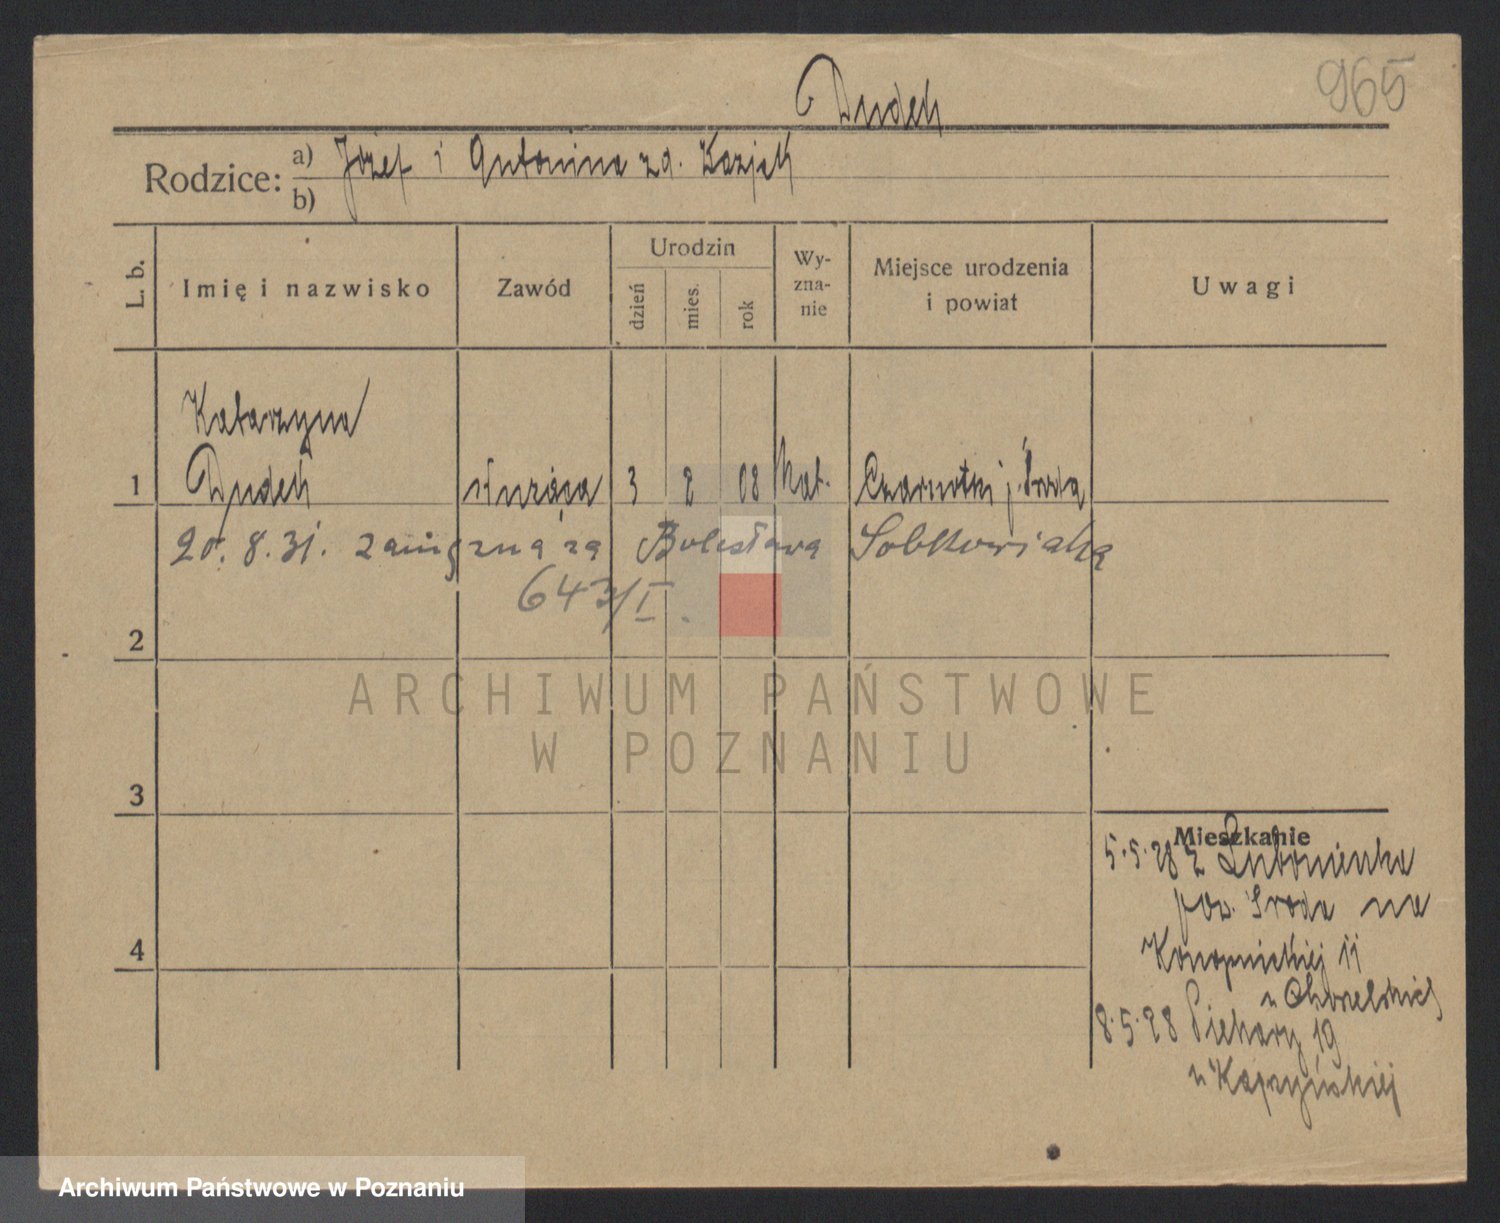 965
Dudek
Rodzice: a) Józef i Antonina zd.
b)
L. b. Imię i nazwisko Zawód Urodzin dzień mies. rok Wy-zna-nie Miejsce urodzenia i powiat Uwagi
Katarzyna
1 Dudek służąca 3 2 08 kat. Czarnotki p. Środa
20. 8. 31. zamężna za Bolesława Sobkowiaka
643/I.
2
ARCHIWUM PAŃSTWOWE
W POZNANIU
3
Mieszkanie
5.5.28 z
pow. Środa na
4 Konopnickiej 11
u
8.5.28 Piekary 19
u Kaczyńskiej
Archiwum Państwowe w Poznaniu